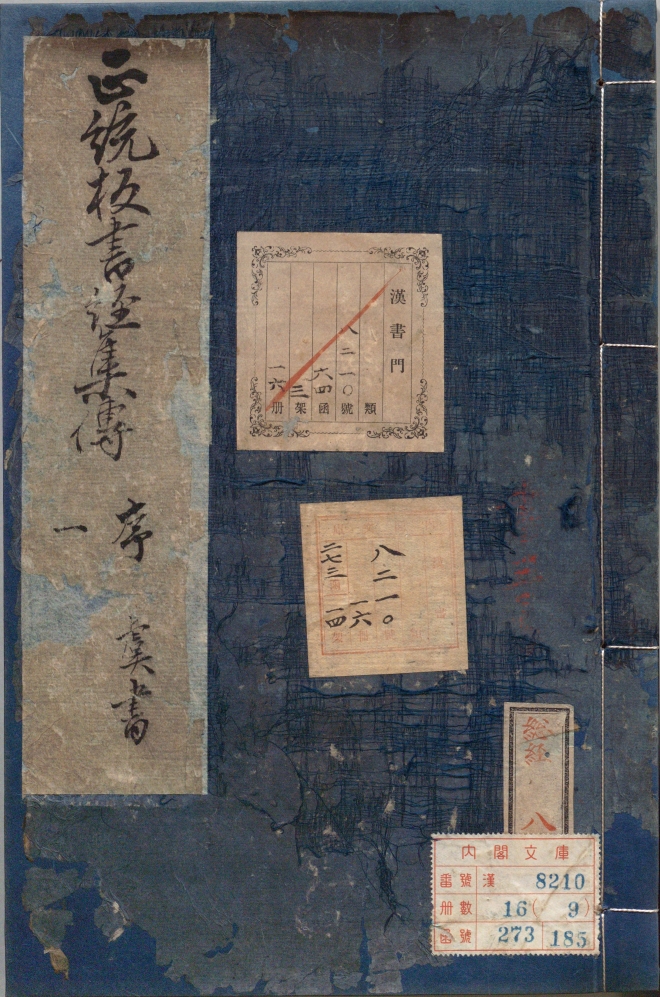 正統板書經集傳
序
虞書
一
漢書門
類
八二一〇號
六四函
三架
一六册
八二一〇
一六
二七三
一四
總經
八
内閣文庫
番號 漢 8210
册數 16( 9)
函號 273 185